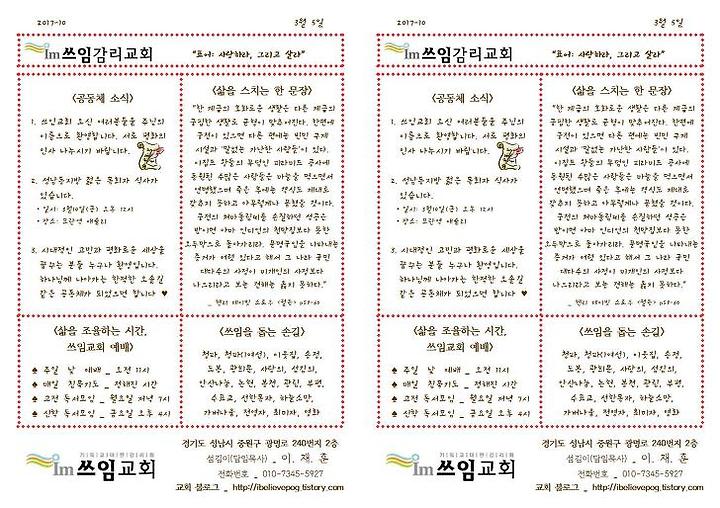 2017-10
3월 5일
Im 쓰임감리교회
"표어: 사랑하라, 그리고 살라"
<공동체 소식>
1. 쓰임교회 오신 여러분들을 주님의
이름으로 환영합니다. 서로 평화의
인사 나누시기 바랍니다.
2. 성남동지방 젊은 목회자 식사가
있습니다.
• 일시: 3월10일(금) 오후 12시
• 장소: 모란역 애슐리
3. 시대적인 고민과 평화로운 세상을
꿈꾸는 분들 누구나 환영입니다.
하나님께 나아가는 한적한 오솔길
같은 공동체가 되었으면 합니다 ♥
<삶을 스치는 한 문장>
"한 계급의 호화로운 생활은 다른 계급의
궁핍한 생활로 균형이 맞추어진다. 한편에
궁전이 있으면 다른 편에는 빈민 구제
시설과 '말없는 가난한 사람들'이 있다.
이집트 왕들의 무덤인 피라미드 공사에
동원된 수많은 사람들은 마늘을 먹으면서
연명했으며 죽은 후에는 격식도 제대로
갖추지 못하고 아무렇게나 묻혔을 것이다.
궁전의 처마돌림띠를 손질하던 석공은
밤이면 아마 인디언의 천막집보다 못한
오두막으로 돌아가리라. 문명국임을 나타내는
증거가 여럿 있다고 해서 그 나라 국민
대다수의 사정이 미개인의 사정보다
나으리라고 보면 큰 오산이 될지 못하다."
_ 헨리 데이빗 소로우 <월든> p58-60
<삶을 조율하는 시간,
쓰임교회 예배>
♠ 주일 낮 예배 _ 오전 11시
♠ 매일 침묵기도 _ 정해진 시간
♠ 고전 독서모임 _ 월요일 저녁 7시
♠ 신학 독서모임 _ 금요일 오후 4시
<쓰임을 돕는 손길>
청파, 청파(여선), 이웅길, 순전,
도봉, 광희문, 사랑의, 섬김의,
안산나눔, 논현, 본천, 광림, 부평,
수표교, 선한목자, 하늘소망,
가버나움, 전영자, 최미자, 영화
기독교대한감리회
Im 쓰임교회
경기도 성남시 중원구 광명로 240번지 2층
섬김이(담임목사) _ 이 재 훈
전화번호 _ 010-7345-5927
교회 블로그 _ http://ibelievepog.tistory.com
2017-10
3월 5일
Im 쓰임감리교회
"표어: 사랑하라, 그리고 살라"
<공동체 소식>
1. 쓰임교회 오신 여러분들을 주님의
이름으로 환영합니다. 서로 평화의
인사 나누시기 바랍니다.
2. 성남동지방 젊은 목회자 식사가
있습니다.
• 일시: 3월10일(금) 오후 12시
• 장소: 모란역 애슐리
3. 시대적인 고민과 평화로운 세상을
꿈꾸는 분들 누구나 환영입니다.
하나님께 나아가는 한적한 오솔길
같은 공동체가 되었으면 합니다 ♥
<삶을 스치는 한 문장>
"한 계급의 호화로운 생활은 다른 계급의
궁핍한 생활로 균형이 맞추어진다. 한편에
궁전이 있으면 다른 편에는 빈민 구제
시설과 '말없는 가난한 사람들'이 있다.
이집트 왕들의 무덤인 피라미드 공사에
동원된 수많은 사람들은 마늘을 먹으면서
연명했으며 죽은 후에는 격식도 제대로
갖추지 못하고 아무렇게나 묻혔을 것이다.
궁전의 처마돌림띠를 손질하던 석공은
밤이면 아마 인디언의 천막집보다 못한
오두막으로 돌아가리라. 문명국임을 나타내는
증거가 여럿 있다고 해서 그 나라 국민
대다수의 사정이 미개인의 사정보다
나으리라고 보면 견해는 옳지 못하다."
_ 헨리 데이빗 소로우 <월든> p58-60
<삶을 조율하는 시간,
쓰임교회 예배>
♠ 주일 낮 예배 _ 오전 11시
♠ 매일 침묵기도 _ 정해진 시간
♠ 고전 독서모임 _ 월요일 저녁 7시
♠ 신학 독서모임 _ 금요일 오후 4시
<쓰임을 돕는 손길>
청파, 청파(여선), 이웅길, 순전,
도봉, 광희문, 사랑의, 섬김의,
안산나눔, 논현, 본천, 광림, 부평,
수표교, 선한목자, 하늘소망,
가버나움, 전영자, 최미자, 영화
기독교대한감리회
Im 쓰임교회
경기도 성남시 중원구 광명로 240번지 2층
섬김이(담임목사) _ 이 재 훈
전화번호 _ 010-7345-5927
교회 블로그 _ http://ibelievepog.tistory.com